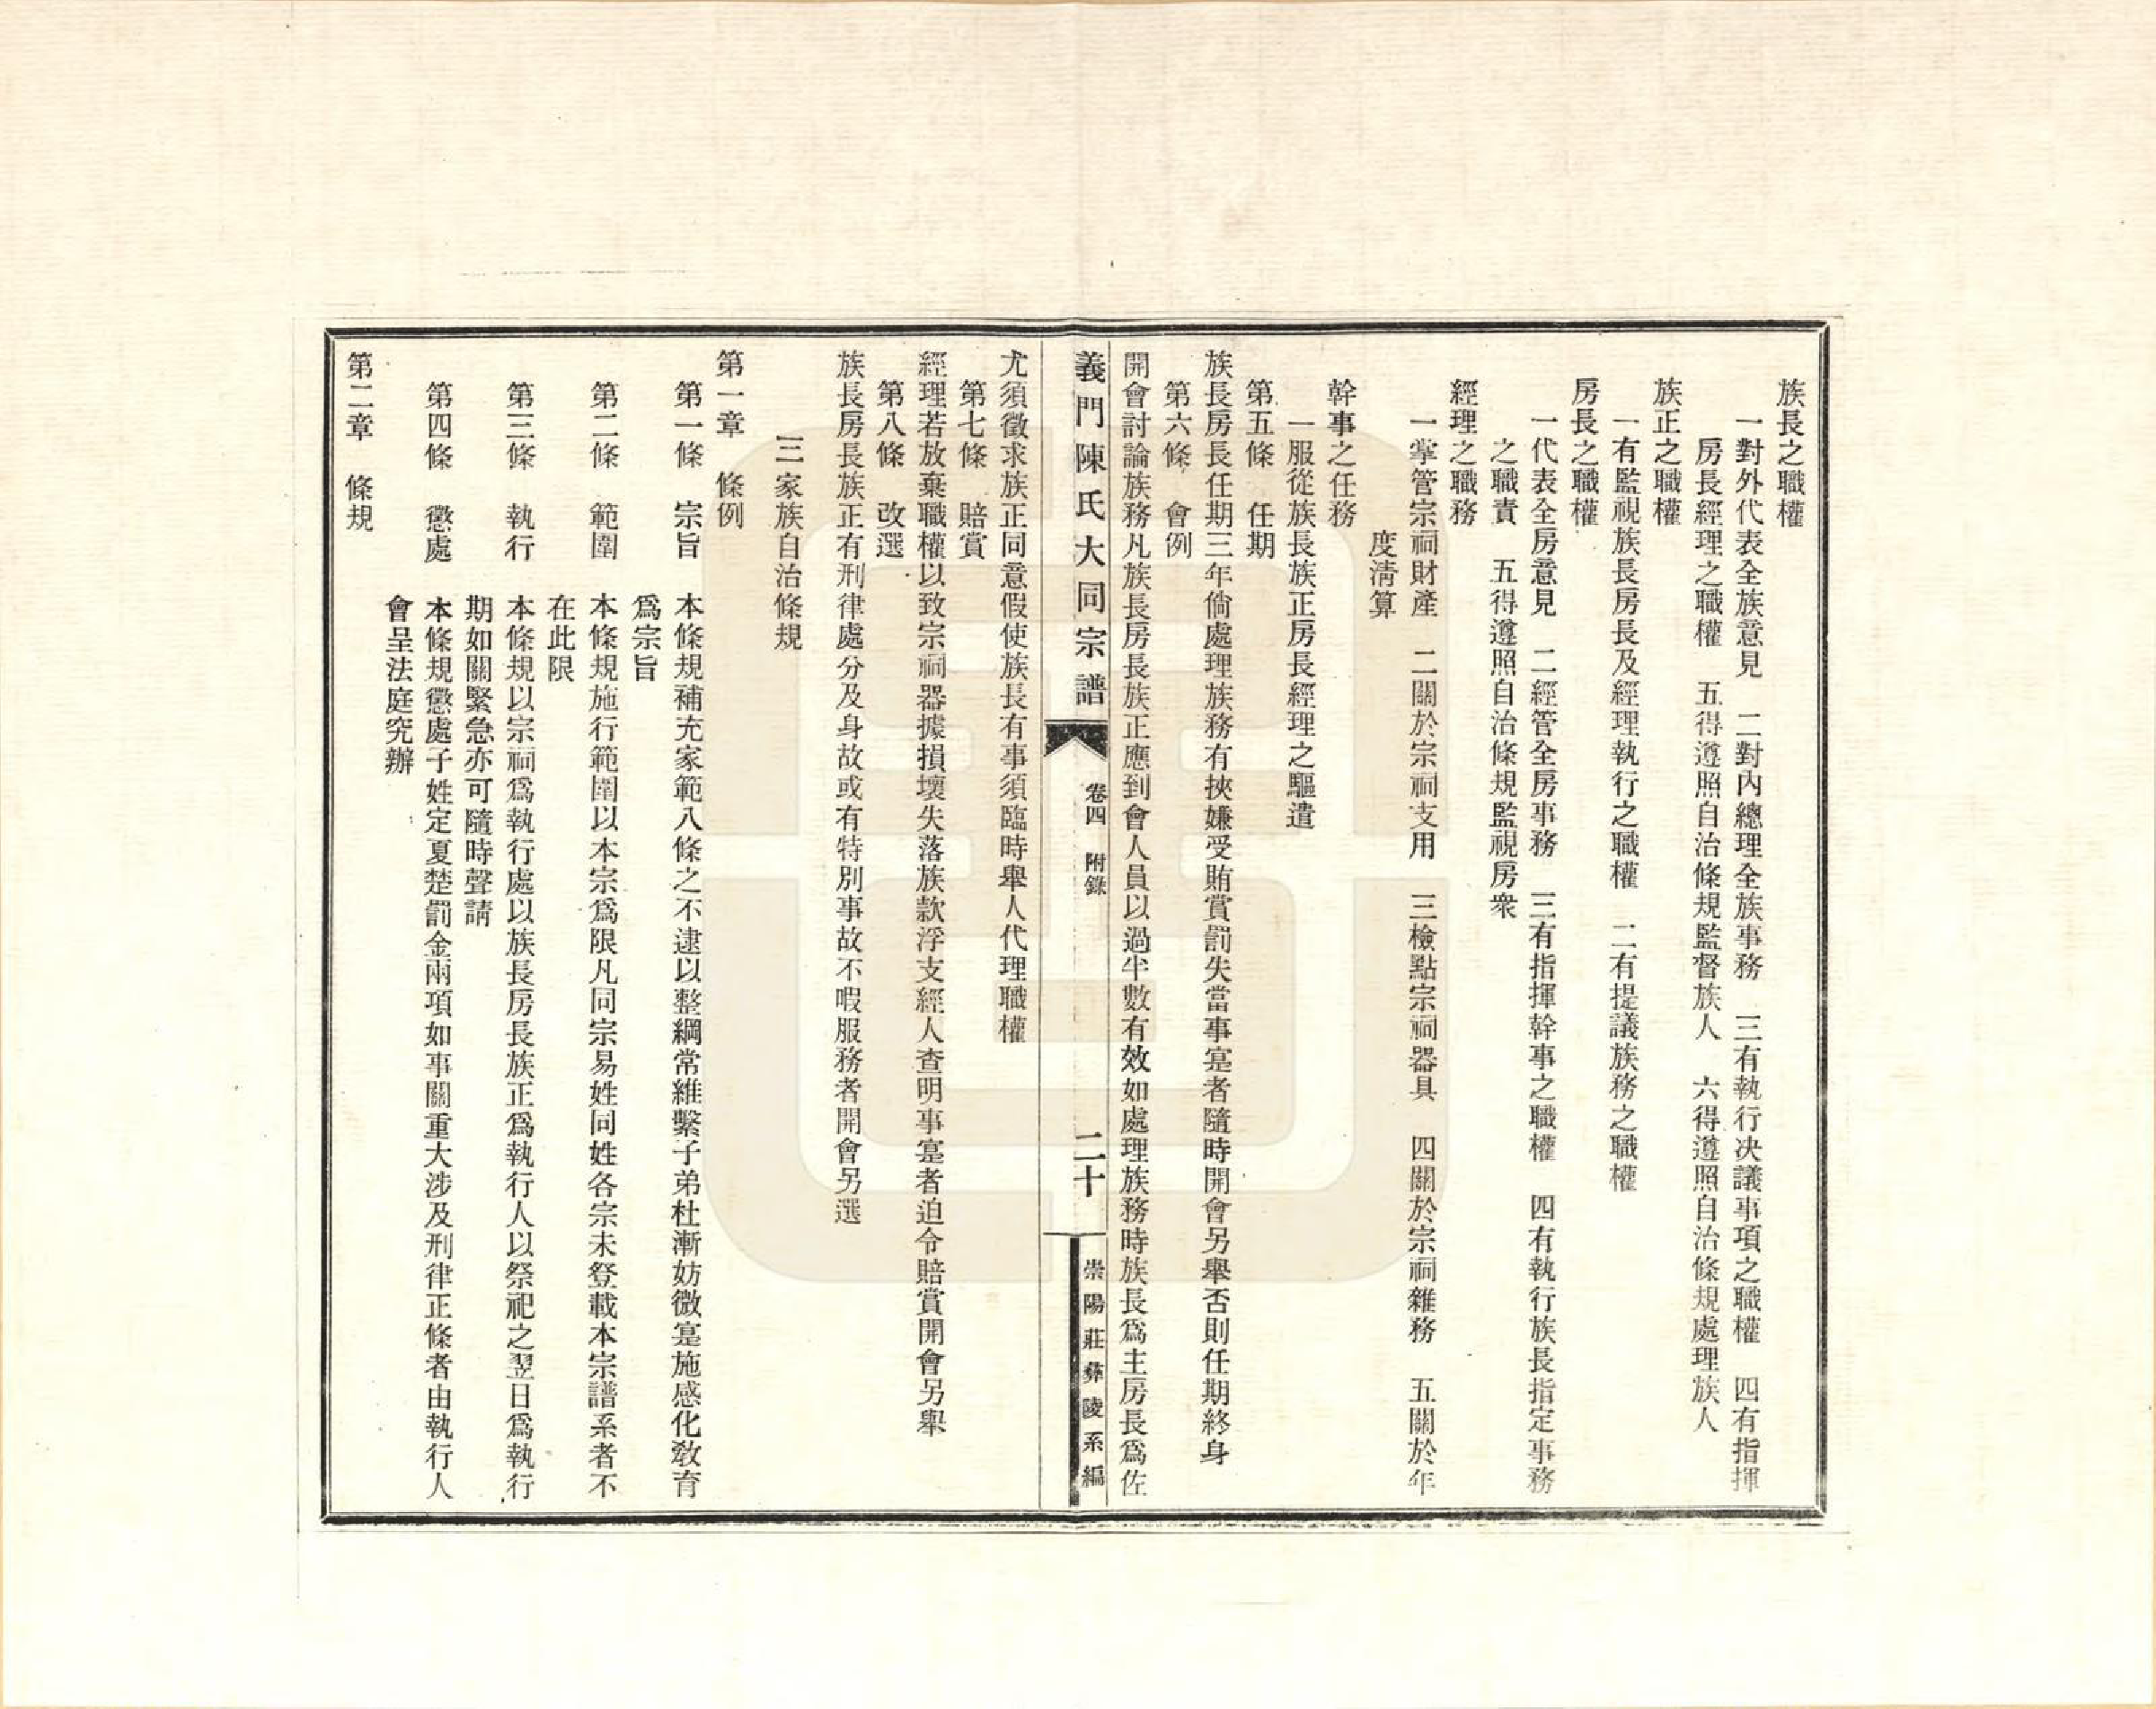 族長之職權
一對外代表全族意見　二對內總理全族事務　三有執行決議事項之職權　四有指揮
房長經理之職權　五得遵照自治條規監督族人　六得遵照自治條規處理族人
族正之職權
一有監視族長房長及經理執行之職權　二有提議族務之職權
房長之職權
一代表全房意見　二經管全房事務　三有指揮幹事之職權　四有執行族長指定事務
之職責　五得遵照自治條規監視房衆
經理之職務
一掌管宗祠財產　二關於宗祠支用　三檢點宗祠器具　四關於宗祠雜務　五關於年
度淸算
幹事之任務
一服從族長族正房長經理之驅遣
第五條　任期
族長房長任期三年倘處理族務有挾嫌受賄賞罰失當事寔者隨時開會另舉否則任期終身
第六條　會例
開會討論族務凡族長房長族正應到會人員以過半數有效如處理族務時族長爲主房長爲佐
義門陳氏大同宗譜　卷四　附錄　二十　崇陽莊彝陵系編
尤須徵求族正同意假使族長有事須臨時舉人代理職權
第七條　賠賞
經理若放棄職權以致宗祠器據損壞失落族款浮支經人查明事寔者迫令賠賞開會另舉
第八條　改選
族長房長族正有刑律處分及身故或有特別事故不暇服務者開會另選
三家族自治條規
第一章　條例
第一條　宗旨　本條規補充家範八條之不逮以整綱常維繫子弟杜漸妨微寔施感化敎育
爲宗旨
第二條　範圍　本條規施行範圍以本宗爲限凡同宗易姓同姓各宗未登載本宗譜系者不
在此限
第三條　執行　本條規以宗祠爲執行處以族長房長族正爲執行人以祭祀之翌日爲執行
期如關緊急亦可隨時聲請
第四條　懲處　本條規懲處子姓定夏楚罰金兩項如事關重大涉及刑律正條者由執行人
會呈法庭究辦
第二章　條規